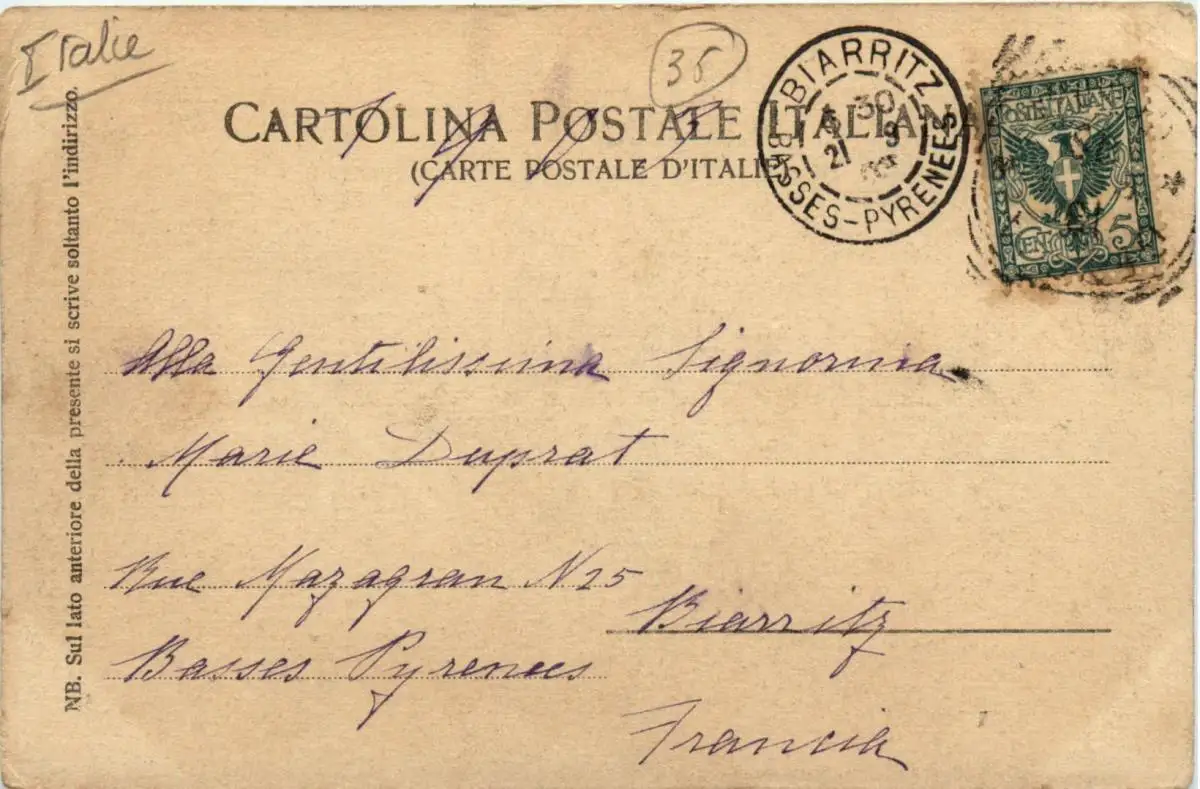 Italie
35
CARTOLINA POSTALE ITALIANA
(CARTE POSTALE D'ITALIE)
BIARRITZ
30
21 9
BASSES-PYRENEES
POSTE ITALIANE
CENT 5
NB. Sul lato anteriore della presente si scrive soltanto l'indirizzo.
Alla Gentilissima Signorina
Marie Duprat
Rue Mazagran N 25
Biarritz
Basses Pyrenees
Francia